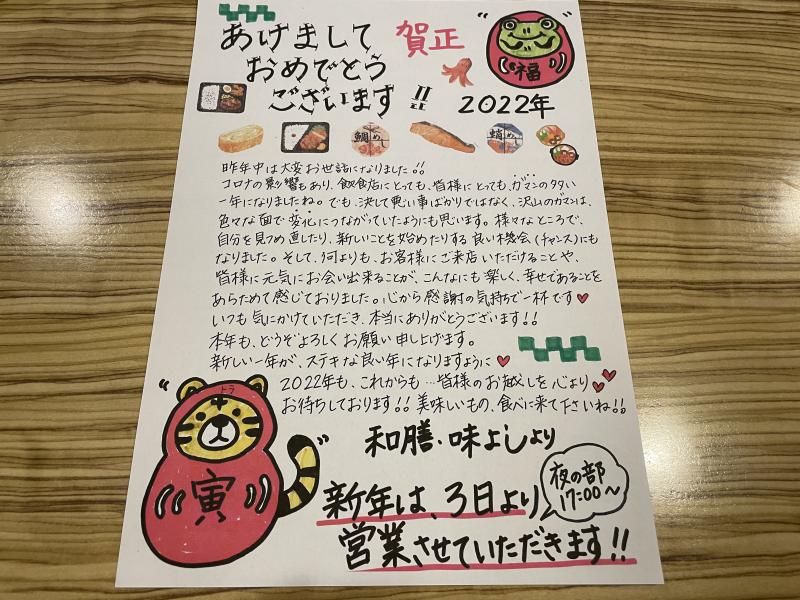 あけまして 賀正
おめでとう
ございます!! 2022年
福
鯛めし
蛸めし
昨年中は大変お世話になりました!!
コロナの影響もあり、飲食店にとっても、皆様にとっても、ガマンの多い
一年になりましたね。でも、決して悪い事ばかりではなく、沢山のガマンは、
色々な面で変化につながっていたようにも思います。様々なところで、
自分を見つめ直したり、新しいことを始めたりする良い機会(チャンス)にも
なりました。そして、何よりも、お客様にご来店いただけることや、
皆様に元気にお会い出来ることが、こんなにも楽しく、幸せであることを
あらためて感じておりました。心から感謝の気持ちで一杯です♥
いつも気にかけていただき、本当にありがとうございます!!
本年も、どうぞよろしくお願い申し上げます。
新しい一年が、ステキな良い年になりますように♥
2022年も、これからも…皆様のお越しを心より
お待ちしております!!美味しいもの、食べに来て下さいね!!
トラ
寅
和膳・味よしより
新年は、3日より
夜の部
17:00〜
営業させていただきます!!